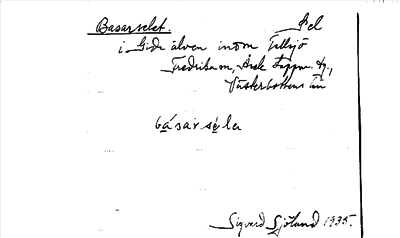 Basarselet. Sel
i Gide älven inom Tallsjö
Fredrika sn, Åsele Lappm. tg.,
Västerbottens län
básar séler
Sigvard Sjölund 1935.